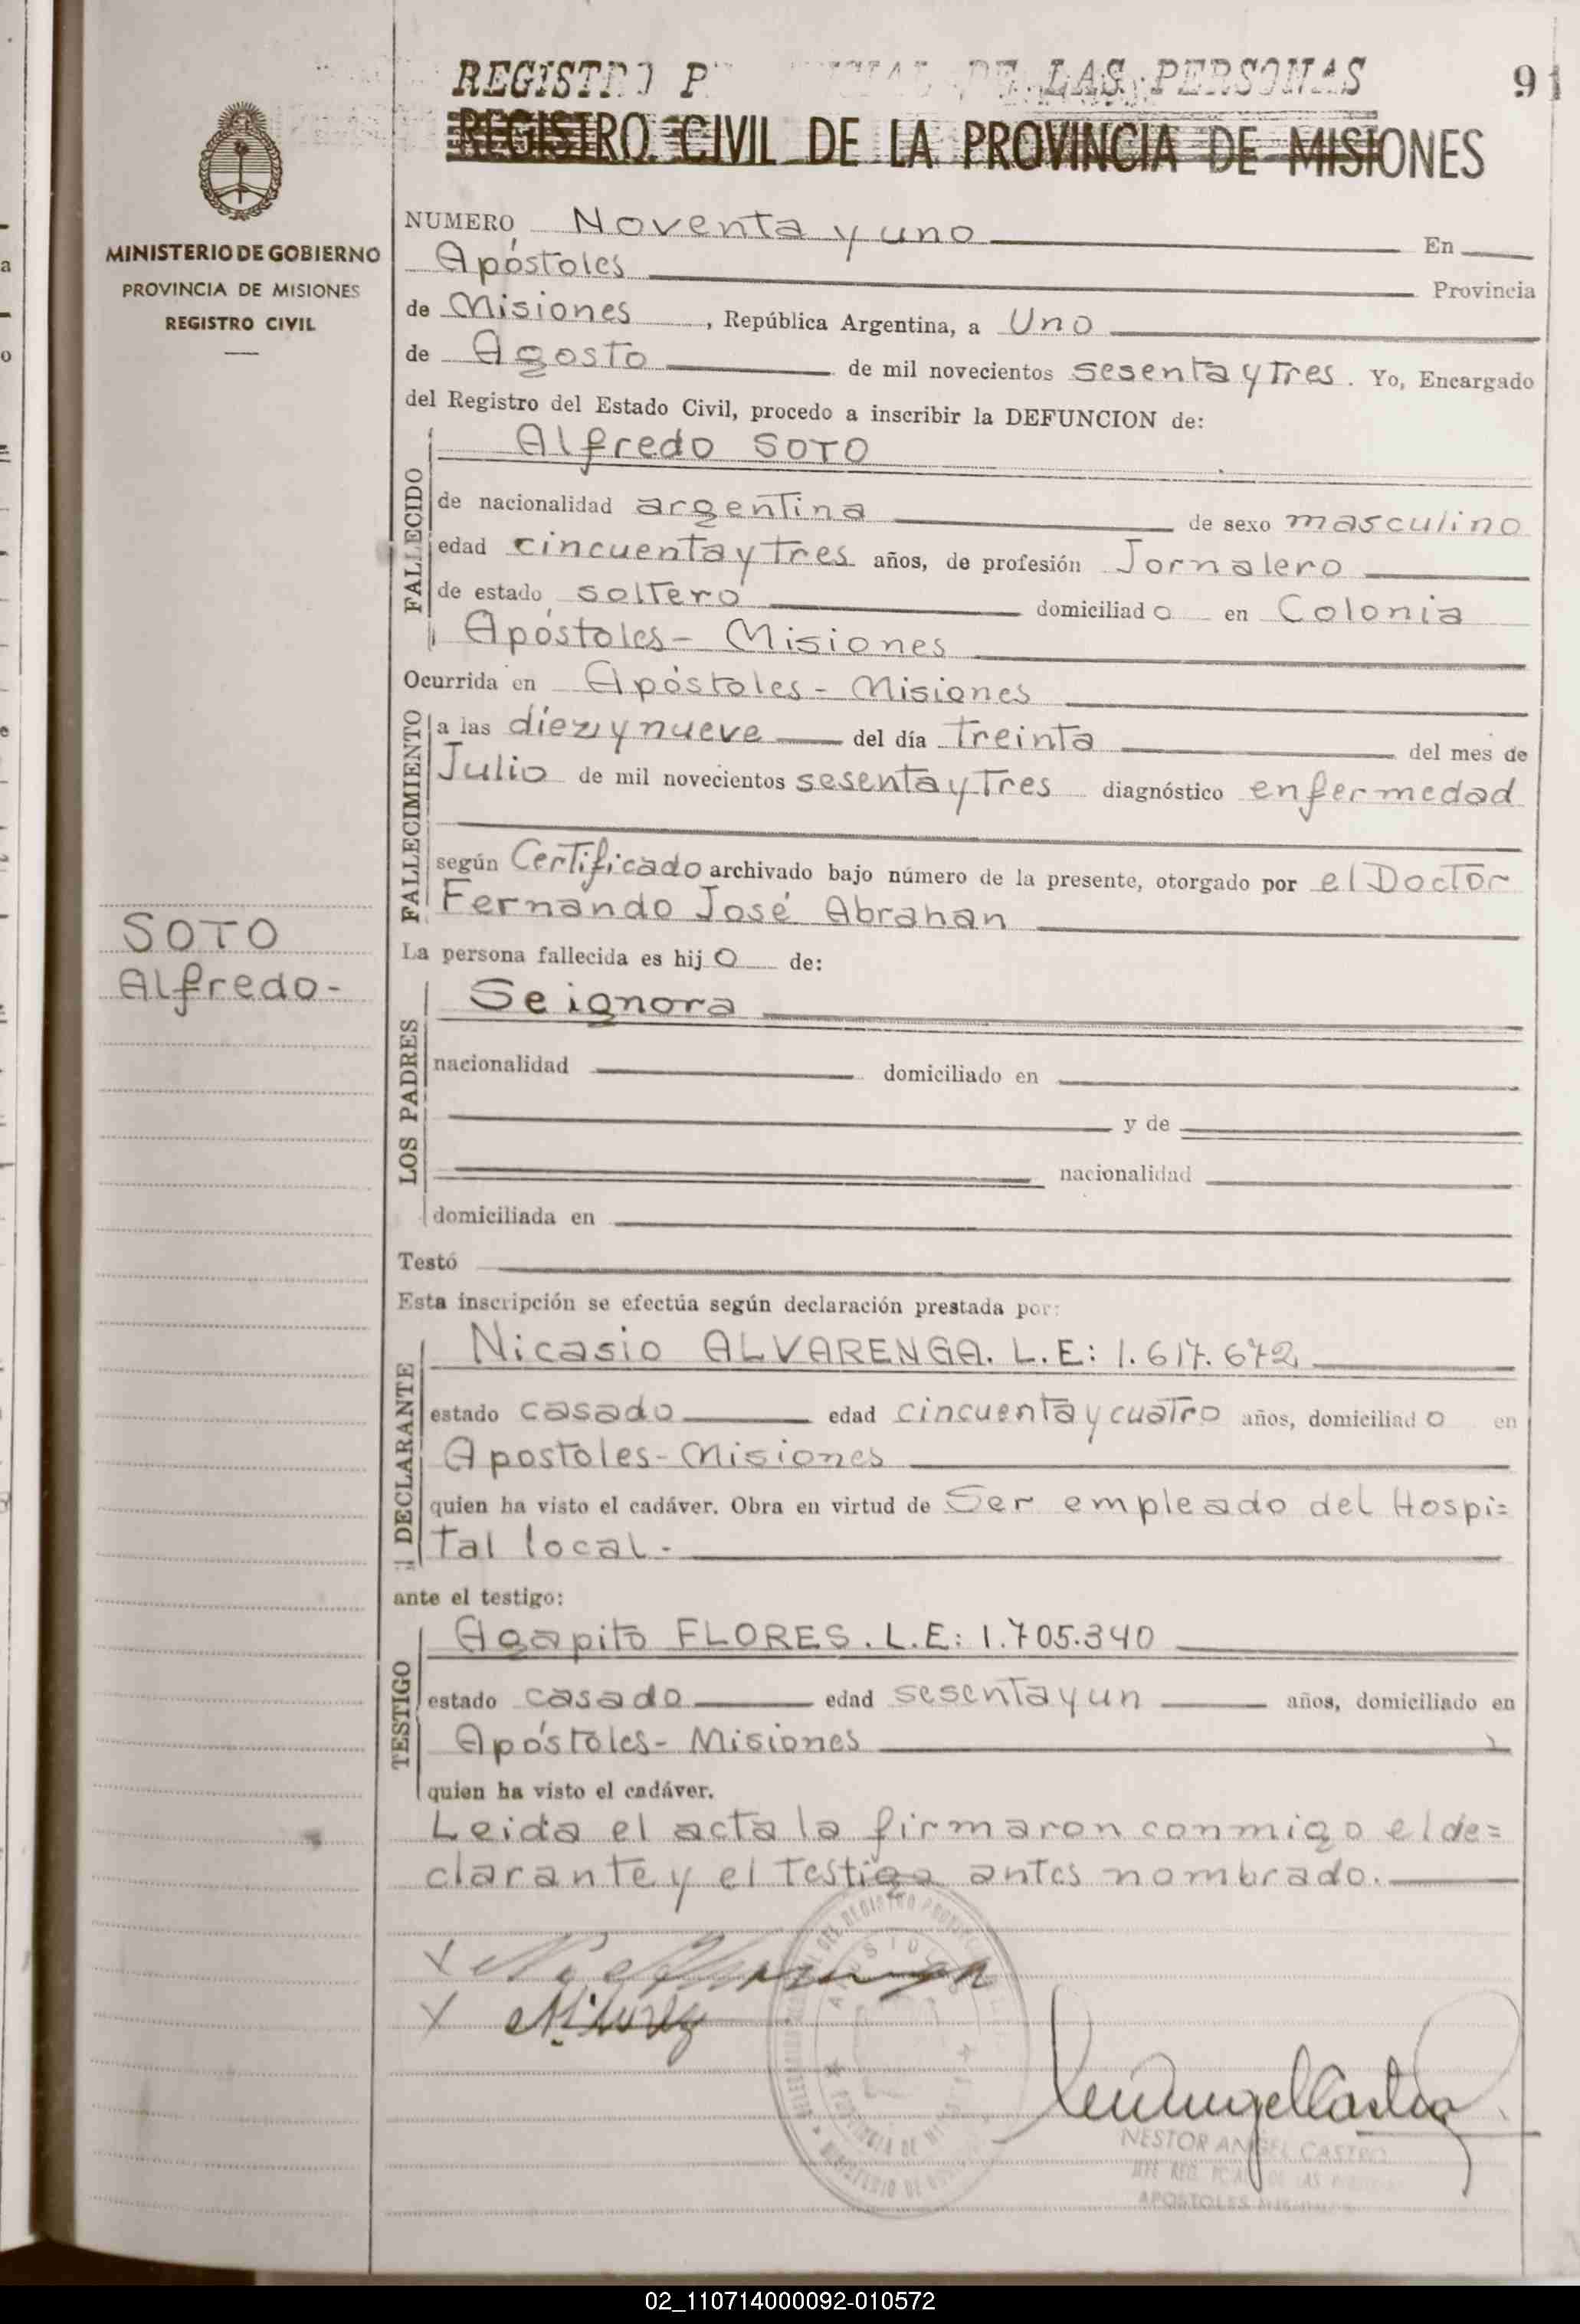 REGISTRO P CIAL DE LAS PERSONAS
91
REGISTRO CIVIL DE LA PROVINCIA DE MISIONES
MINISTERIO DE GOBIERNO
PROVINCIA DE MISIONES
REGISTRO CIVIL
SOTO
Alfredo-
NUMERO Noventa y uno En
Apóstoles Provincia
de Misiones, República Argentina, a Uno
de Agosto de mil novecientos sesenta y tres. Yo, Encargado
del Registro del Estado Civil, procedo a inscribir la DEFUNCION de:
FALLECIDO
Alfredo SOTO
de nacionalidad argentina de sexo masculino
edad cincuenta y tres años, de profesión Jornalero
de estado soltero domiciliado en Colonia
Apóstoles- Misiones
Ocurrida en Apóstoles- Misiones
FALLECIMIENTO
a las diez y nueve del día treinta del mes de
Julio de mil novecientos sesenta y tres diagnóstico enfermedad
según Certificado archivado bajo número de la presente, otorgado por el Doctor
Fernando José Abrahan
La persona fallecida es hijo de:
LOS PADRES
Se ignora
nacionalidad domiciliado en
y de
nacionalidad
domiciliada en
Testó
Esta inscripción se efectúa según declaración prestada por:
DECLARANTE
Nicasio ALVARENGA. L.E: 1.617.672
estado casado edad cincuenta y cuatro años, domiciliado en
Apostoles- Misiones
quien ha visto el cadáver. Obra en virtud de Ser empleado del Hospi=
tal local.-
ante el testigo:
TESTIGO
Agapito FLORES. L.E: 1.705.340
estado casado edad sesenta y un años, domiciliado en
Apóstoles- Misiones
quien ha visto el cadáver.
Leida el acta la firmaron conmigo el de=
clarante y el testigo antes nombrado.
NESTOR ANGEL CASTRO
JEFE REG. PCIAL DE LAS
APOSTOLES
02_110714000092-010572